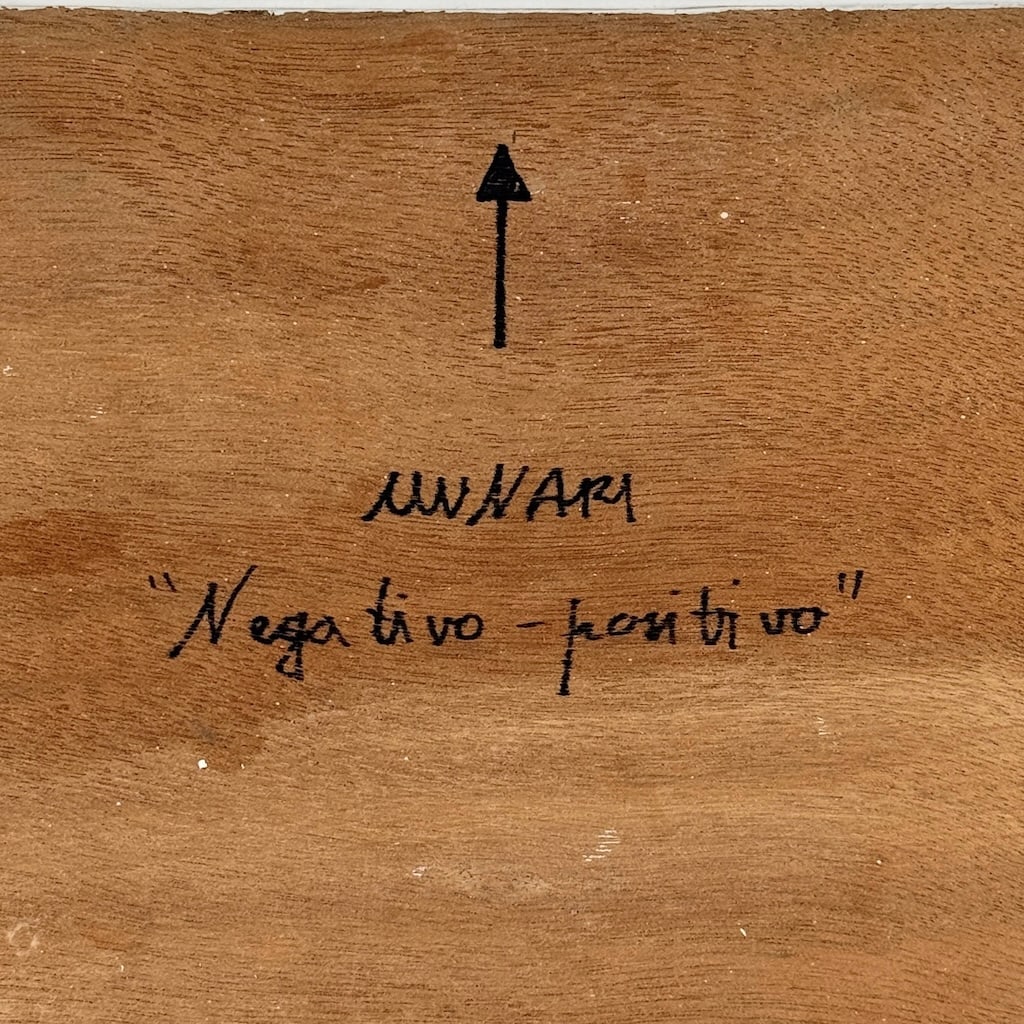 MUNARI
"Negativo - positivo"